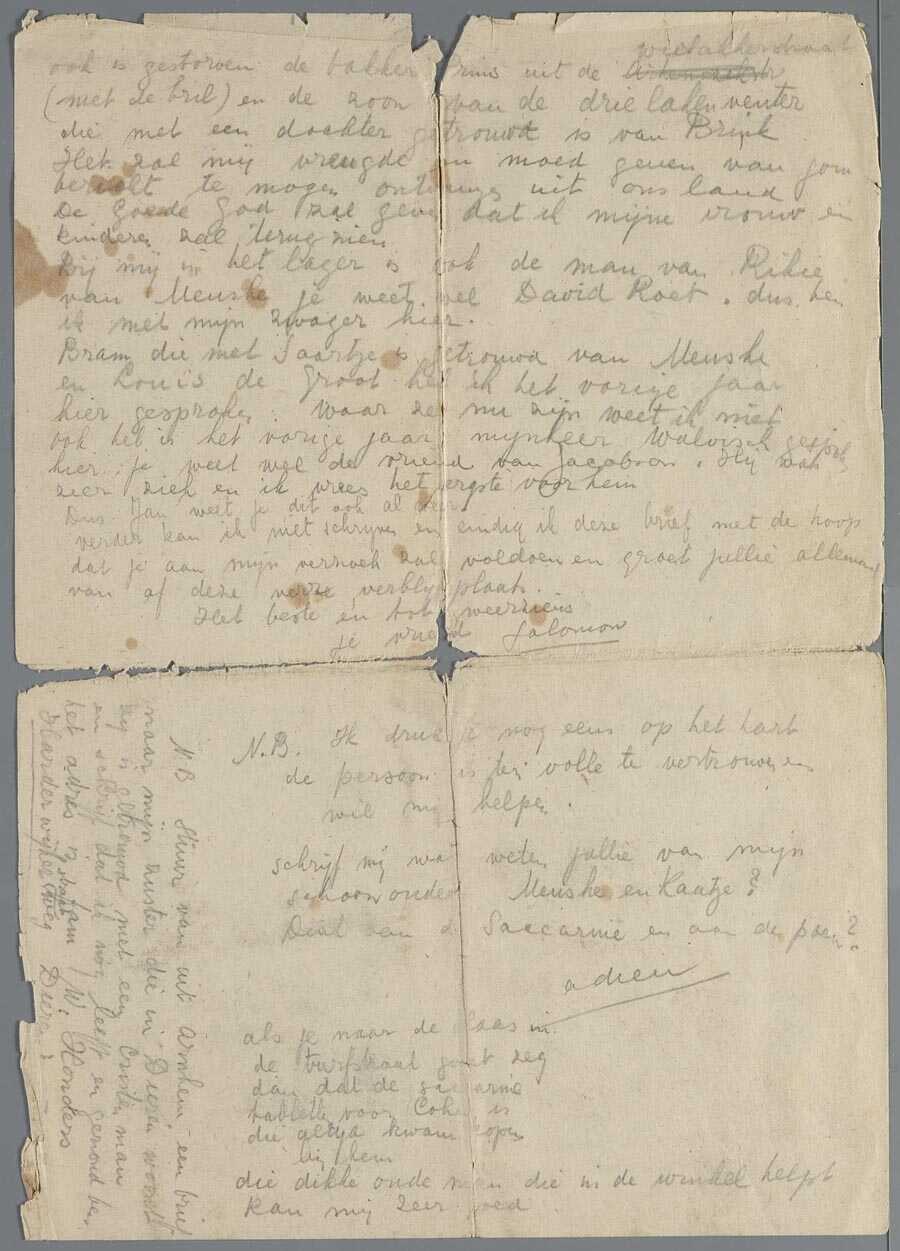 ook is gestorven de bakker Prins uit de
(met de bril) en de zoon van de drie laken venter
die met een dochter getrouwd is van Brink
Het zal mij vreugde en moed geven van jou
bericht te mogen uit ons land
De Goede God zal geven dat ik mijne vrouw en
kinderen zal terug zien
Bij mij in het lager is ook de man van Rikie
van Menske je weet wel David Roet. dus ben
ik met mijn zwager hier.
Bram die met Saartje is getrouwd van Menske
en Louis de Groot heb ik het vorige jaar
hier gesproken. Waar ze nu zijn weet ik niet
ook heb ik het vorige jaar mijnheer Walvisch
hier, je weet wel de vriend van Jacobson. Hij was
zeer ziek en ik vrees het ergste voor hem
Dus Jan weet je dit ook al weer
verder kan ik niet schrijven en eindig ik deze brief met de hoop
dat je aan mijn verzoek zal voldoen en groet jullie allemaal
van af deze verre verblijfplaats.
Het beste en tot weerziens
je vriend Salomon
N.B. Ik druk je nog eens op het hart
de persoon is ten volle te vertrouwen
wil mij helpen.
schrijf mij wat weten jullie van mijn
schoonouders Menske en Kaatje?
Denk aan de Saccarine en aan de poen?
adieu
als je naar de Haas in
de turfstraat gaat zeg
dan dat de saccarine
tablette voor Cohen is
die altijd kwam kopen
bij hem
die dikke oude man die in de winkel helpt
kan mij zeer goed
N.B Stuur van uit Arnhem een brief
naar mijn zuster die in Dieren woont
zij is getrouwd met een Cristen man
en schrijf dat ik nog leef en gezond ben
het adres is fam W. Honders
Harderwijkerweg Dieren